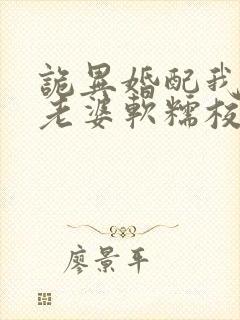 詭異婚配我
老婆軟糯
廖景平